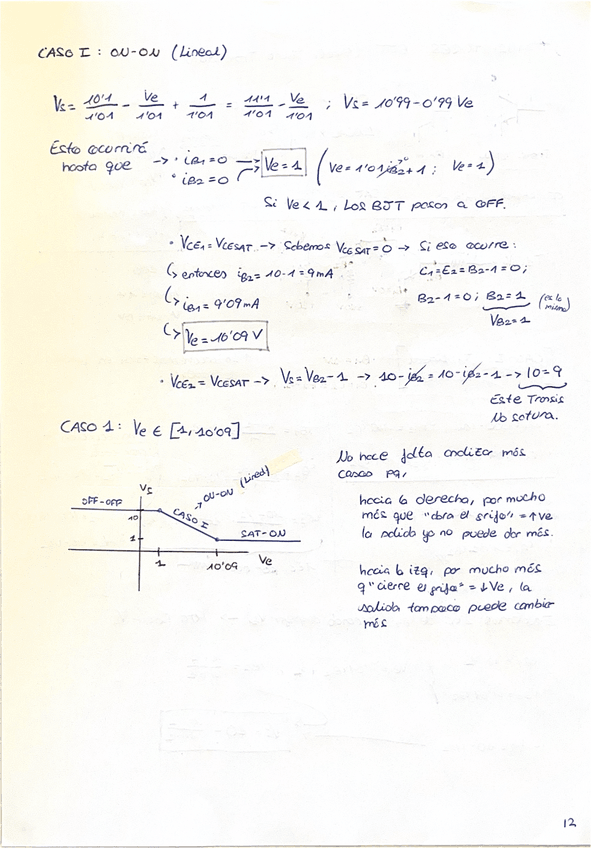 CASO I : ON-ON (Lineal)
Vs = 10'1/1'01 - Ve/1'01 + 1/1'01 = 11'1/1'01 - Ve/1'01 ; Vs = 10'99 - 0'99 Ve
Esto ocurrirá hasta que → · iB1 = 0 → Ve = 1 (Ve = 1'01 iB2 + 1 ; Ve = 1)
· iB2 = 0
Si Ve < 1, Los BJT pasan a OFF.
· VCE1 = VCESAT → Sabemos VCESAT = 0 → Si eso ocurre:
↳ entonces iB2 = 10 - 1 = 9mA
C1 = E2 = B2 - 1 = 0 ;
↳ iB1 = 9'09 mA
B2 - 1 = 0 ; B2 = 1 (es lo mismo)
VB2 = 1
↳ Ve = 10'09 V
· VCE2 = VCESAT → Vs = VB2 - 1 → 10 - iB2 = 10 - iB2 - 1 → 10 = 9
Este Transis
No satura.
CASO 1 : Ve ∈ [1, 10'09]
No hace falta analizar más
casos pq,
hacia la derecha, por mucho
más que "abra el grifo" = ↑Ve
la salida ya no puede dar más.
hacia la izq, por mucho más
q "cierre el grifo" = ↓Ve, la
salida tampoco puede cambiar
más
Vs
→ ON-ON (Lineal)
OFF-OFF
10
CASO I
SAT-ON
1
1
10'09
Ve
12